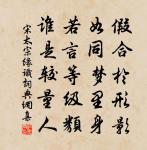 假合於形影
如同夢里身
若言等級類
誰是較量人
宋太宗緣識詞典網集